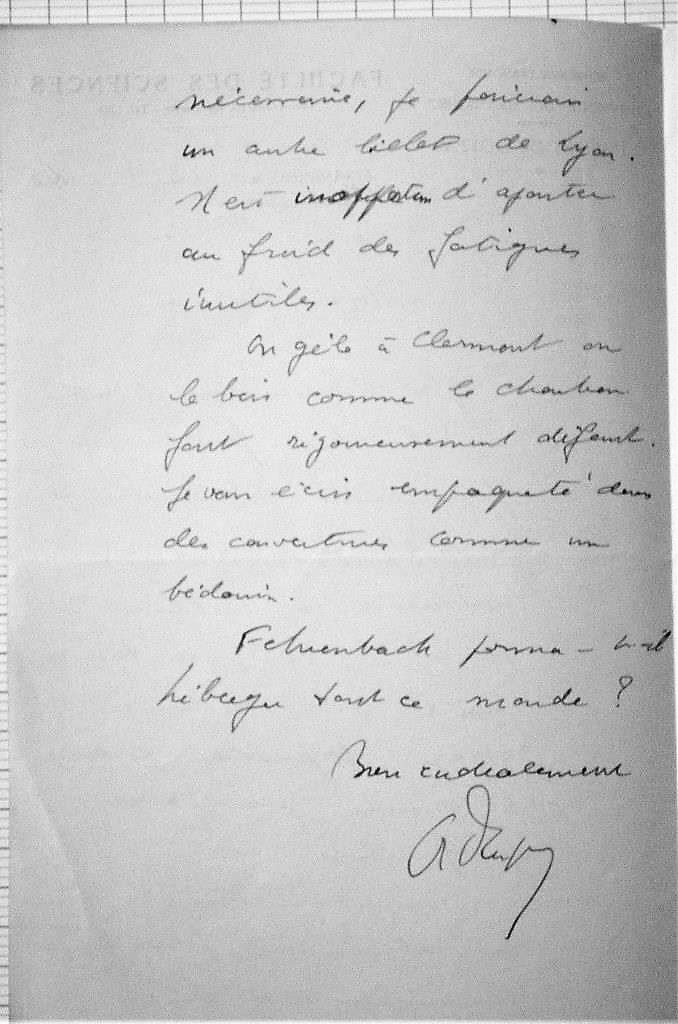 FACULTÉ DES SCIENCES
nécessaire, je
un autre billet de Lyon.
Il est d'ajouter
au froid des fatigues
inutiles.
On gèle à Clermont où
le bois comme le charbon
font rigoureusement défaut.
Je vous écris empaqueté dans
des couvertures comme un
bédouin.
Fehrenbach pourra-t-il
héberger tout ce monde ?
Bien cordialement